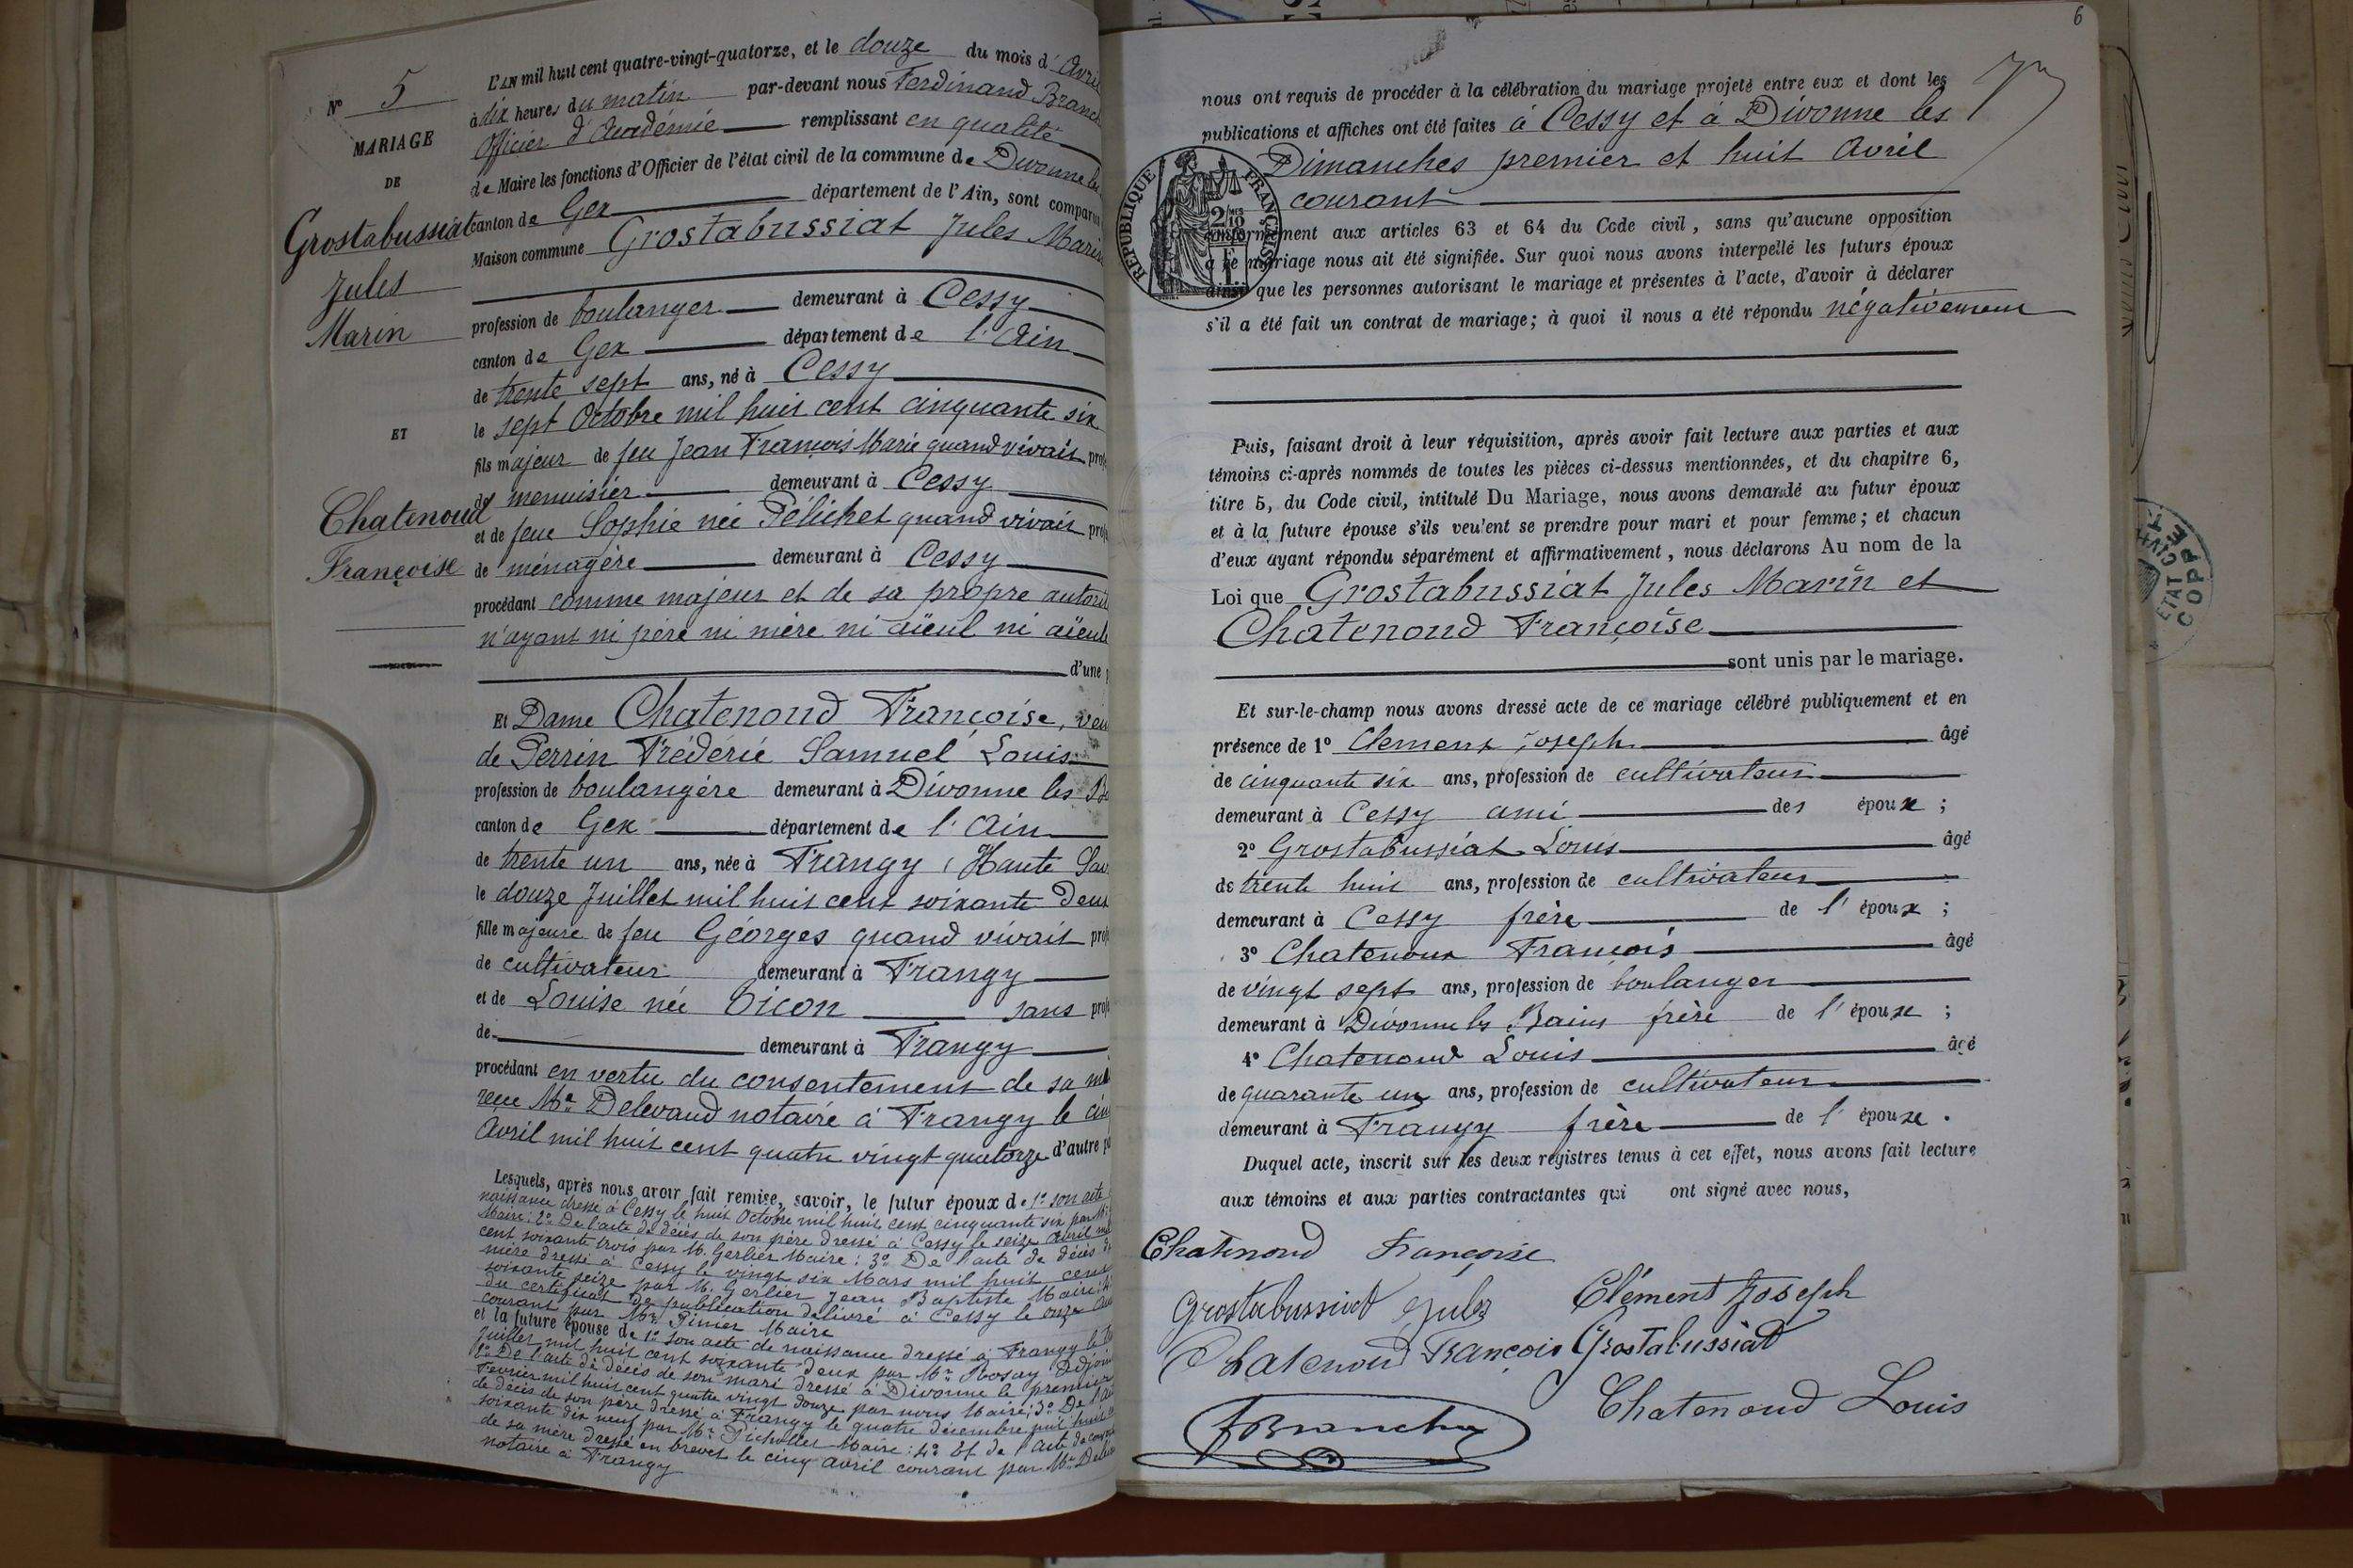 N° 5
MARIAGE
DE
Grostabussiat
Jules
Marin
ET
Chatenoud
Françoise
L'AN mil huit cent quatre-vingt-quatorze, et le douze du mois d'Avril
à dix heures du matin par-devant nous Ferdinand Branch
Officier d'Académie remplissant en qualité
de Maire les fonctions d'Officier de l'état civil de la commune de Divonne les
canton de Gex département de l'Ain, sont comparus
Maison commune Grostabussiat Jules Marin
profession de boulanger demeurant à Cessy
canton de Gex département de l'Ain
de trente sept ans, né à Cessy
le sept Octobre mil huit cent cinquante six
fils majeur de feu Jean François Marie quand vivait prof
de menuisier demeurant à Cessy
et de feue Sophie née Pélichet quand vivait prof
de ménagère demeurant à Cessy
procédant comme majeur et de sa propre autorit
n'ayant ni père ni mère ni aïeul ni aïeule
d'une p
Et Dame Chatenoud Françoise, veu
de Perrin Frédéric Samuel Louis
profession de boulangère demeurant à Divonne les Ba
canton de Gex département de l'Ain
de trente un ans, née à Frangy (Haute Sav
le douze Juillet mil huit cent soixante deux
fille majeure de feu Géorges quand vivait prof
de cultivateur demeurant à Frangy
et de Louise née Bicon sans prof
de demeurant à Frangy
procédant en vertu du consentement de sa mè
reçue Me Delevaud notaire à Frangy le cin
Avril mil huit cent quatre vingt quatorze d'autre pa
Lesquels, après nous avoir fait remise, savoir, le futur époux de 1° son acte
naissance dressé à Cessy le huit Octobre mil huit cent cinquante six par Mr
Maire; 2° De l'acte de décès de son père dressé à Cessy le seize Avril mil
cent soixante trois par M. Gerlier Maire; 3° De l'acte de décès de
mère dressé à Cessy le vingt six Mars mil huit cent
soixante seize par M. Gerlier Jean Baptiste Maire; 4°
du certificat de publication délivré à Cessy le onze Av
courant par Mr Pimer Maire
et la future épouse de 1° son acte de naissance dressé à Frangy le
Juillet mil huit cent soixante deux par Mr Rosay Adjoin
2° De l'acte de décès de son mari dressé à Divonne le premier
Février mil huit cent quatre vingt douze par nous Maire; 3° De l'ac
de décès de son père dressé à Frangy le quatre décembre mil huit
soixante dix neuf par Mr Pichollet Maire; 4° Et de l'acte de cons
de sa mère dressé en brevet le cinq avril courant par Me Delev
notaire à Frangy
6
nous ont requis de procéder à la célébration du mariage projeté entre eux et dont les
publications et affiches ont été faites à Cessy et à Divonne les
Dimanches premier et huit Avril
courant
conformément aux articles 63 et 64 du Code civil, sans qu'aucune opposition
à ce mariage nous ait été signifiée. Sur quoi nous avons interpellé les futurs époux
ainsi que les personnes autorisant le mariage et présentes à l'acte, d'avoir à déclarer
s'il a été fait un contrat de mariage; à quoi il nous a été répondu négativement
RÉPUBLIQUE FRANÇAISE
Puis, faisant droit à leur réquisition, après avoir fait lecture aux parties et aux
témoins ci-après nommés de toutes les pièces ci-dessus mentionnées, et du chapitre 6,
titre 5, du Code civil, intitulé Du Mariage, nous avons demandé au futur époux
et à la future épouse s'ils veulent se prendre pour mari et pour femme; et chacun
d'eux ayant répondu séparément et affirmativement, nous déclarons Au nom de la
Loi que Grostabussiat Jules Marin et
Chatenoud Françoise
sont unis par le mariage.
Et sur-le-champ nous avons dressé acte de ce mariage célébré publiquement et en
présence de 1° Clement Joseph âgé
de cinquante six ans, profession de cultivateur
demeurant à Cessy ami des époux;
2° Grostabussiat Louis âgé
de trente huit ans, profession de cultivateur
demeurant à Cessy frère de l'époux;
3° Chatenoux François âgé
de vingt sept ans, profession de boulanger
demeurant à Divonne les Bains frère de l'épouse;
4° Chatenoud Louis âgé
de quarante un ans, profession de cultivateur
demeurant à Frangy frère de l'épouse.
Duquel acte, inscrit sur les deux registres tenus à cet effet, nous avons fait lecture
aux témoins et aux parties contractantes qui ont signé avec nous,
Chatenoud Françoise
Grostabussiat Jules
Clément Joseph
Chatenoud François
Grostabussiat
Chatenoud Louis
FBranchu
ÉTAT CIVIL
COPPE